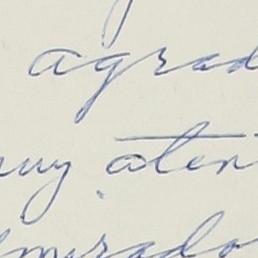 agrad
muy aten
mirado